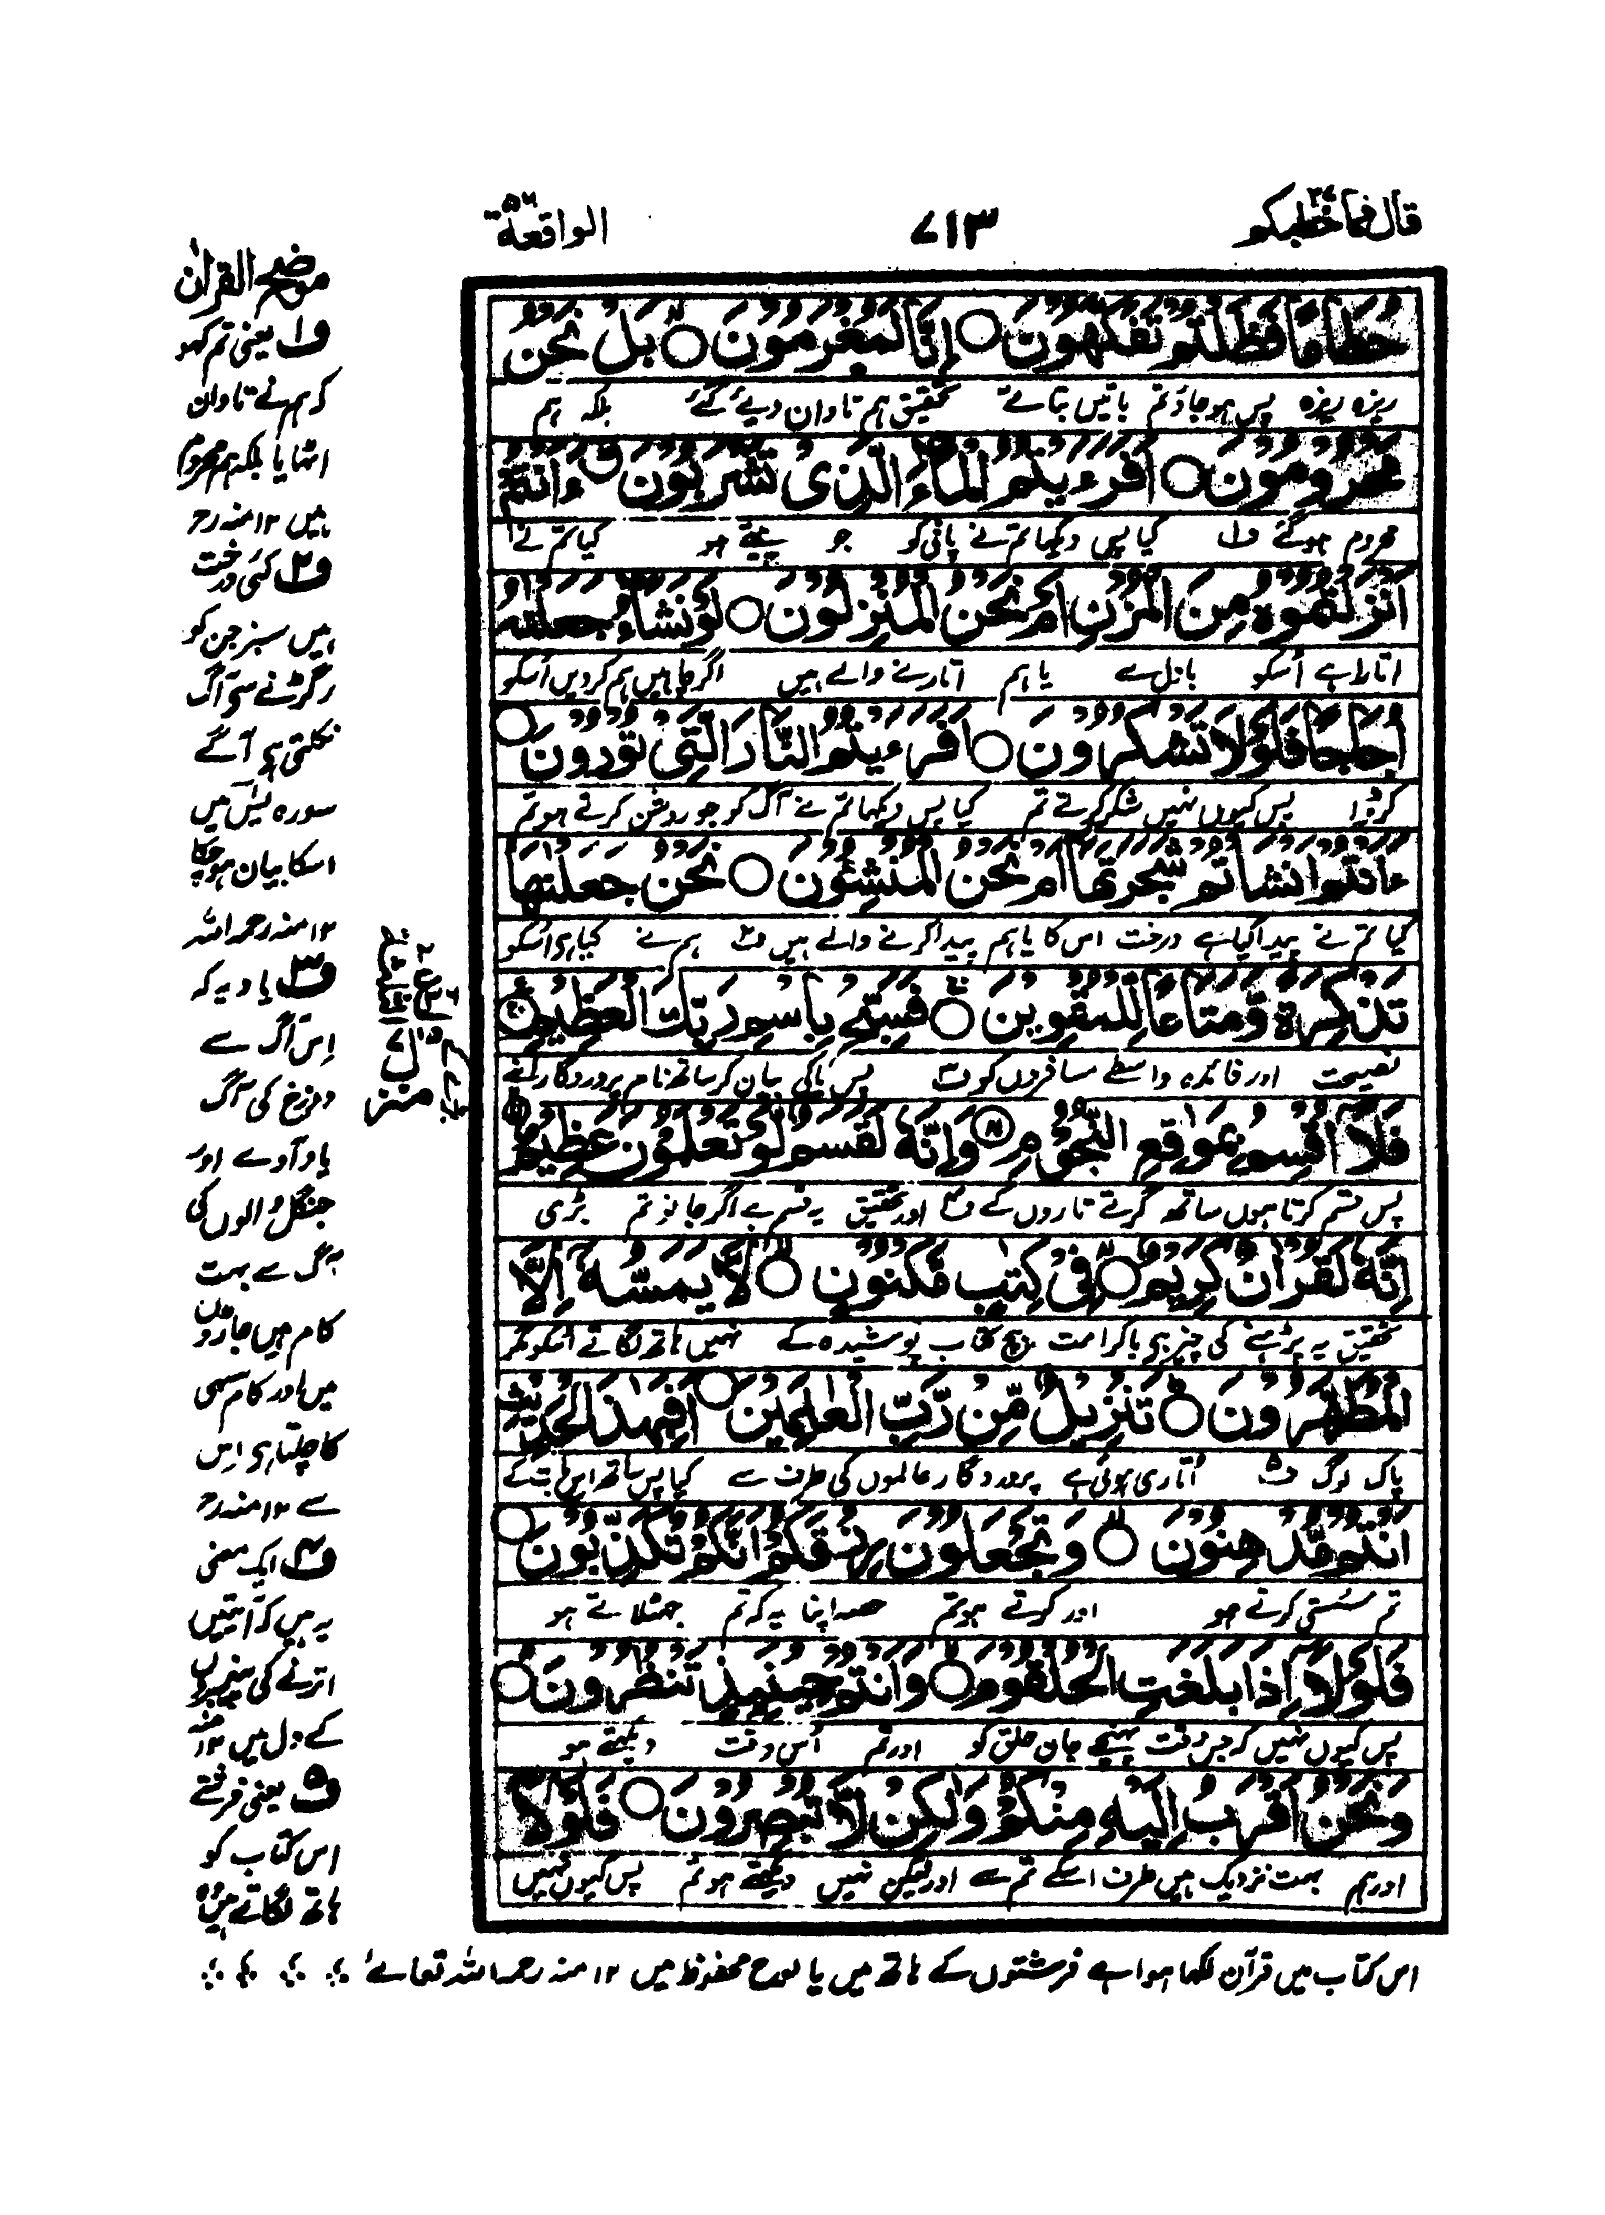 قال فما خطبكم ٢٧
٧١٣
الواقعة ٥٦
حُطَامًا فَظَلْتُمْ تَفَكَّهُونَ ○ إِنَّا لَمُغْرَمُونَ ○ بَلْ نَحْنُ
ریزہ ریزہ پس ہو جاؤ تم باتیں بناتے تحقیق ہم تاوان دیے گئے بلکہ ہم
مَحْرُومُونَ ○ أَفَرَءَيْتُمُ الْمَاءَ الَّذِي تَشْرَبُونَ ○ ءَأَنْتُمْ
محروم ہوگئے ف۱ کیا پس دیکھا تم نے پانی کو جو پیتے ہو کیا تم نے
أَنْزَلْتُمُوهُ مِنَ الْمُزْنِ أَمْ نَحْنُ الْمُنْزِلُونَ ○ لَوْ نَشَاءُ جَعَلْنٰهُ
اتارا ہے اُسکو بادل سے یا ہم اتارنے والے ہیں اگر چاہیں ہم کردیں اُسکو
أُجَاجًا فَلَوْلَا تَشْكُرُونَ ○ أَفَرَءَيْتُمُ النَّارَ الَّتِي تُورُونَ ○
کڑوا پس کیوں نہیں شکر کرتے تم کیا پس دیکھا تم نے آگ کو جو روشن کرتے ہو تم
ءَأَنْتُمْ أَنْشَأْتُمْ شَجَرَتَهَا أَمْ نَحْنُ الْمُنْشِئُونَ ○ نَحْنُ جَعَلْنٰهَا
کیا تم نے پیدا کیا ہے درخت اس کا یا ہم پیدا کرنے والے ہیں ف۲ ہم نے کیا ہی اُسکو
تَذْكِرَةً وَّمَتَاعًا لِّلْمُقْوِينَ ○ فَسَبِّحْ بِاسْمِ رَبِّكَ الْعَظِيمِ ○
نصیحت اور فائدہ واسطے مسافروں کو ف۳ پس پاکی بیان کر ساتھ نام پروردگار اپنے
فَلَا أُقْسِمُ بِمَوٰقِعِ النُّجُومِ ○ وَإِنَّهُ لَقَسَمٌ لَّوْ تَعْلَمُونَ عَظِيمٌ ○
پس قسم کرتا ہوں ساتھ گرتے تاروں کے ف۴ اور تحقیق یہ قسم ہے اگر جانو تم بڑی
إِنَّهُ لَقُرْاٰنٌ كَرِيمٌ ○ فِي كِتٰبٍ مَّكْنُونٍ ○ لَّا يَمَسُّهُ إِلَّا
تحقیق یہ پڑھنے کی چیز ہی باکرامت بیچ کتاب پوشیدہ کے نہیں ہاتھ لگاتے اُسکو مگر
الْمُطَهَّرُونَ ○ تَنْزِيلٌ مِّنْ رَّبِّ الْعٰلَمِينَ ○ أَفَبِهٰذَا الْحَدِيثِ
پاک لوگ ف۵ اُتاری ہوئی ہے پروردگار عالموں کی طرف سے کیا پس ساتھ اس بات کے
أَنْتُمْ مُّدْهِنُونَ ○ وَتَجْعَلُونَ رِزْقَكُمْ أَنَّكُمْ تُكَذِّبُونَ ○
تم سستی کرتے ہو اور کرتے ہو تم حصہ اپنا یہ کہ تم جھٹلاتے ہو
فَلَوْلَا إِذَا بَلَغَتِ الْحُلْقُومَ ○ وَأَنْتُمْ حِينَئِذٍ تَنْظُرُونَ ○
پس کیوں نہیں کہ جس وقت پہنچے جان حلق کو اور تم اُس وقت دیکھتے ہو
وَنَحْنُ أَقْرَبُ إِلَيْهِ مِنْكُمْ وَلٰكِنْ لَّا تُبْصِرُونَ ○ فَلَوْلَا
اور ہم بہت نزدیک ہیں طرف اسکے تم سے اور لیکن نہیں دیکھتے ہو تم پس کیوں نہیں
موضح القرآن
ف۱ یعنی تم کہو
کہ ہم نے تاوان
اٹھایا بلکہ ہم محروم
ہیں ۱۲ منہ رح
ف۲ کئی درخت
ہیں سبز جن کو
رگڑنے سے آگ
نکلتی ہی آگے
سورہ یٰس میں
اسکا بیان ہوچکا
۱۲ منہ رحمہ اللہ
ف۳ یا دیہ کہ
اِس آگ سے
دوزخ کی آگ
یاد آوے اور
جنگل والوں کی
آگ سے بہت
کام ہیں جاڑوں
میں اور کام سبھی
کا چلتا ہی اِس
سے ۱۲ منہ رح
ف۴ ایک معنی
یہ ہیں کہ آیتیں
اترنے کی پیغمبروں
کے دل میں ۱۲ منہ
ف۵ یعنی فرشتے
اس کتاب کو
ہاتھ لگاتے ہیں وہ
منزل ٧
اس کتاب میں قرآن لکھا ہوا ہے فرشتوں کے ہاتھ میں یا لوح محفوظ میں ۱۲ منہ رحمہ اللہ تعالے